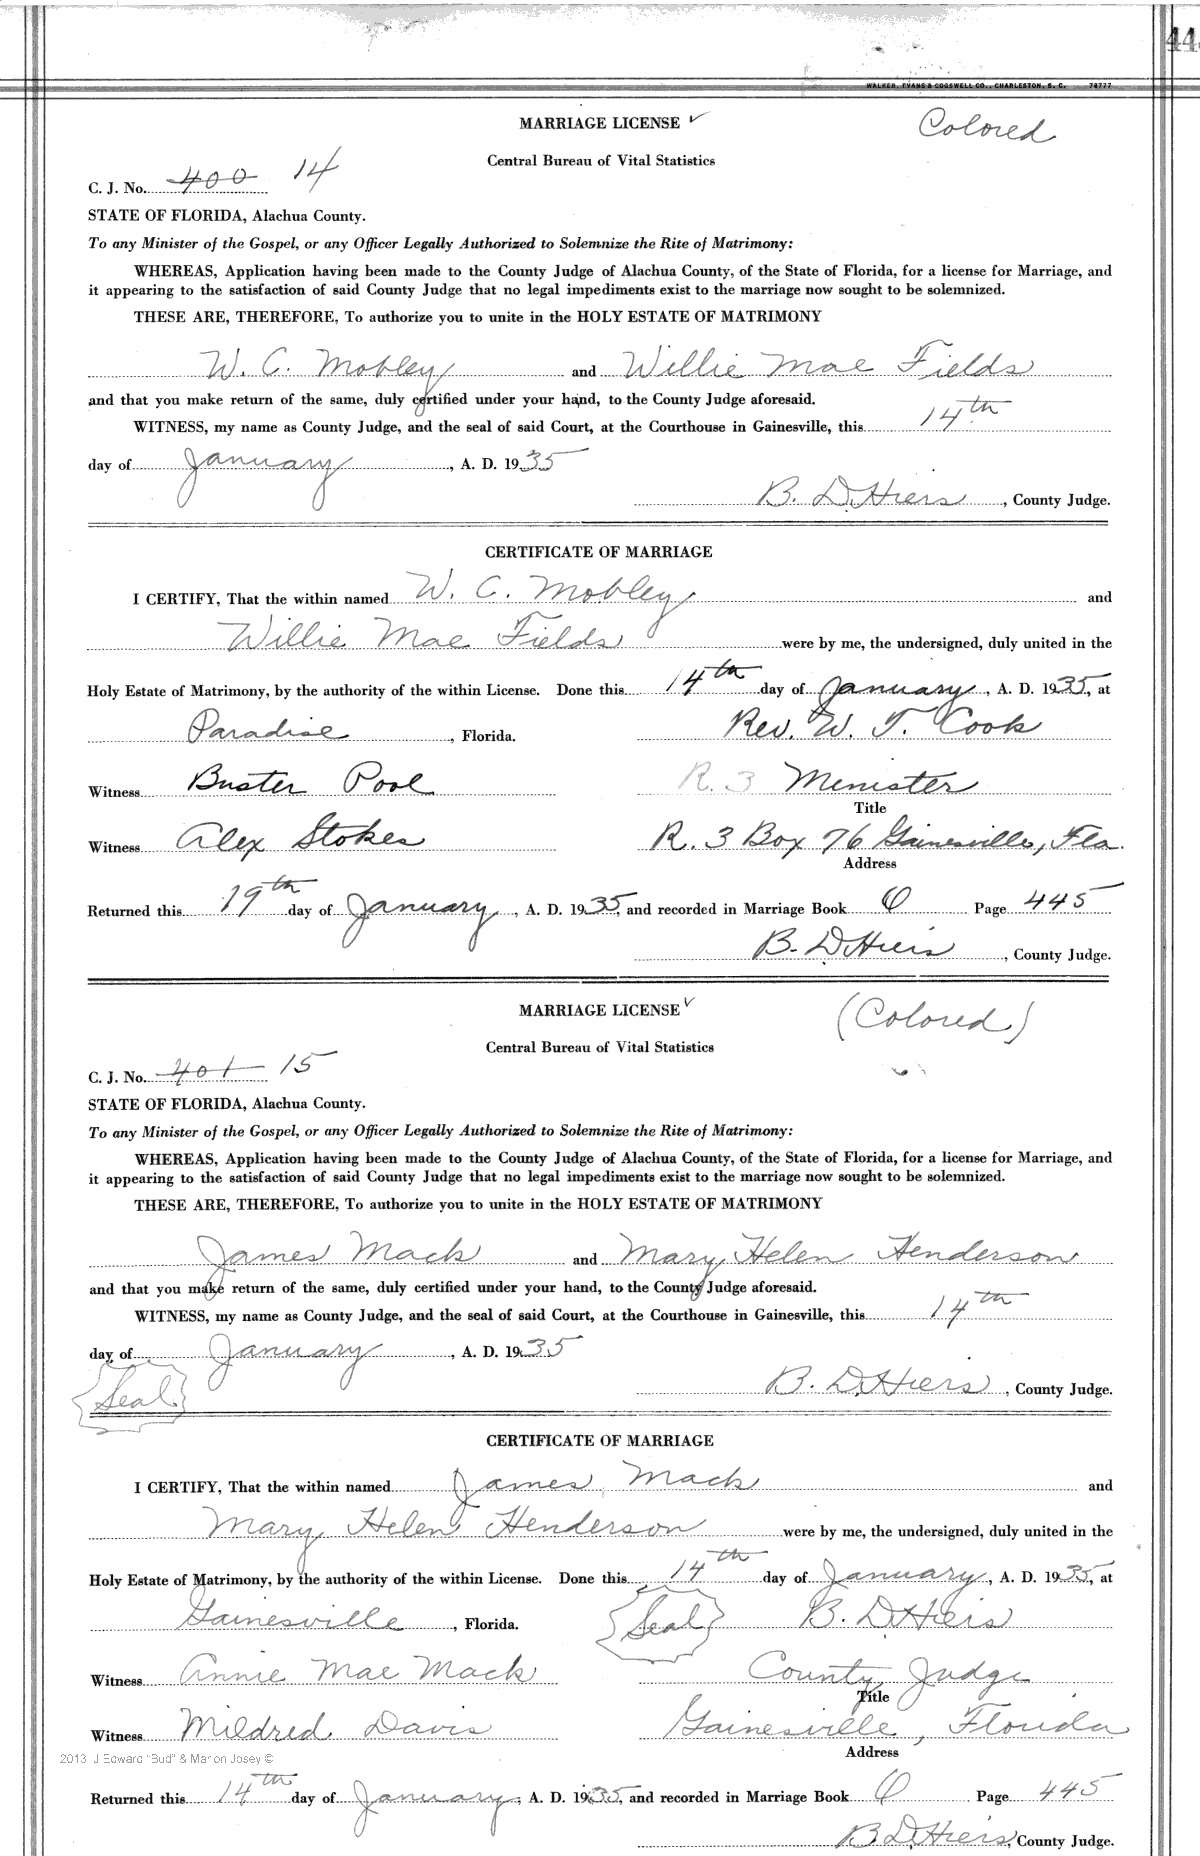 44
WALKER, EVANS & COGSWELL CO., CHARLESTON, S. C. 78777
MARRIAGE LICENSE ✓ Colored
Central Bureau of Vital Statistics
C. J. No. 400 14
STATE OF FLORIDA, Alachua County.
To any Minister of the Gospel, or any Officer Legally Authorized to Solemnize the Rite of Matrimony:
WHEREAS, Application having been made to the County Judge of Alachua County, of the State of Florida, for a license for Marriage, and
it appearing to the satisfaction of said County Judge that no legal impediments exist to the marriage now sought to be solemnized.
THESE ARE, THEREFORE, To authorize you to unite in the HOLY ESTATE OF MATRIMONY
W. C. Mobley and Willie Mae Fields
and that you make return of the same, duly certified under your hand, to the County Judge aforesaid.
WITNESS, my name as County Judge, and the seal of said Court, at the Courthouse in Gainesville, this 14th
day of January, A. D. 1935
B. D. Hiers, County Judge.
CERTIFICATE OF MARRIAGE
I CERTIFY, That the within named W. C. Mobley and
Willie Mae Fields were by me, the undersigned, duly united in the
Holy Estate of Matrimony, by the authority of the within License. Done this 14th day of January, A. D. 1935, at
Paradise, Florida. Rev. W. T. Cook
Witness Buster Pool R. 3 Menister
Title
Witness Alex Stokes R. 3 Box 76 Gainesville, Fla.
Address
Returned this 19th day of January, A. D. 1935, and recorded in Marriage Book Q Page 445
B. D. Hiers, County Judge.
MARRIAGE LICENSE ✓ (Colored)
Central Bureau of Vital Statistics
C. J. No. 401 15
STATE OF FLORIDA, Alachua County.
To any Minister of the Gospel, or any Officer Legally Authorized to Solemnize the Rite of Matrimony:
WHEREAS, Application having been made to the County Judge of Alachua County, of the State of Florida, for a license for Marriage, and
it appearing to the satisfaction of said County Judge that no legal impediments exist to the marriage now sought to be solemnized.
THESE ARE, THEREFORE, To authorize you to unite in the HOLY ESTATE OF MATRIMONY
James Mack and Mary Helen Henderson
and that you make return of the same, duly certified under your hand, to the County Judge aforesaid.
WITNESS, my name as County Judge, and the seal of said Court, at the Courthouse in Gainesville, this 14th
day of January, A. D. 1935
Seal B. D. Hiers, County Judge.
CERTIFICATE OF MARRIAGE
I CERTIFY, That the within named James Mack and
Mary Helen Henderson were by me, the undersigned, duly united in the
Holy Estate of Matrimony, by the authority of the within License. Done this 14th day of January, A. D. 1935, at
Gainesville, Florida. Seal B. D. Hiers
Witness Annie Mae Mack County Judge
Title
Witness Mildred Davis Gainesville, Florida
2013 J Edward "Bud" & Marion Josey © Address
Returned this 14th day of January, A. D. 1935, and recorded in Marriage Book Q Page 445
B. D. Hiers, County Judge.